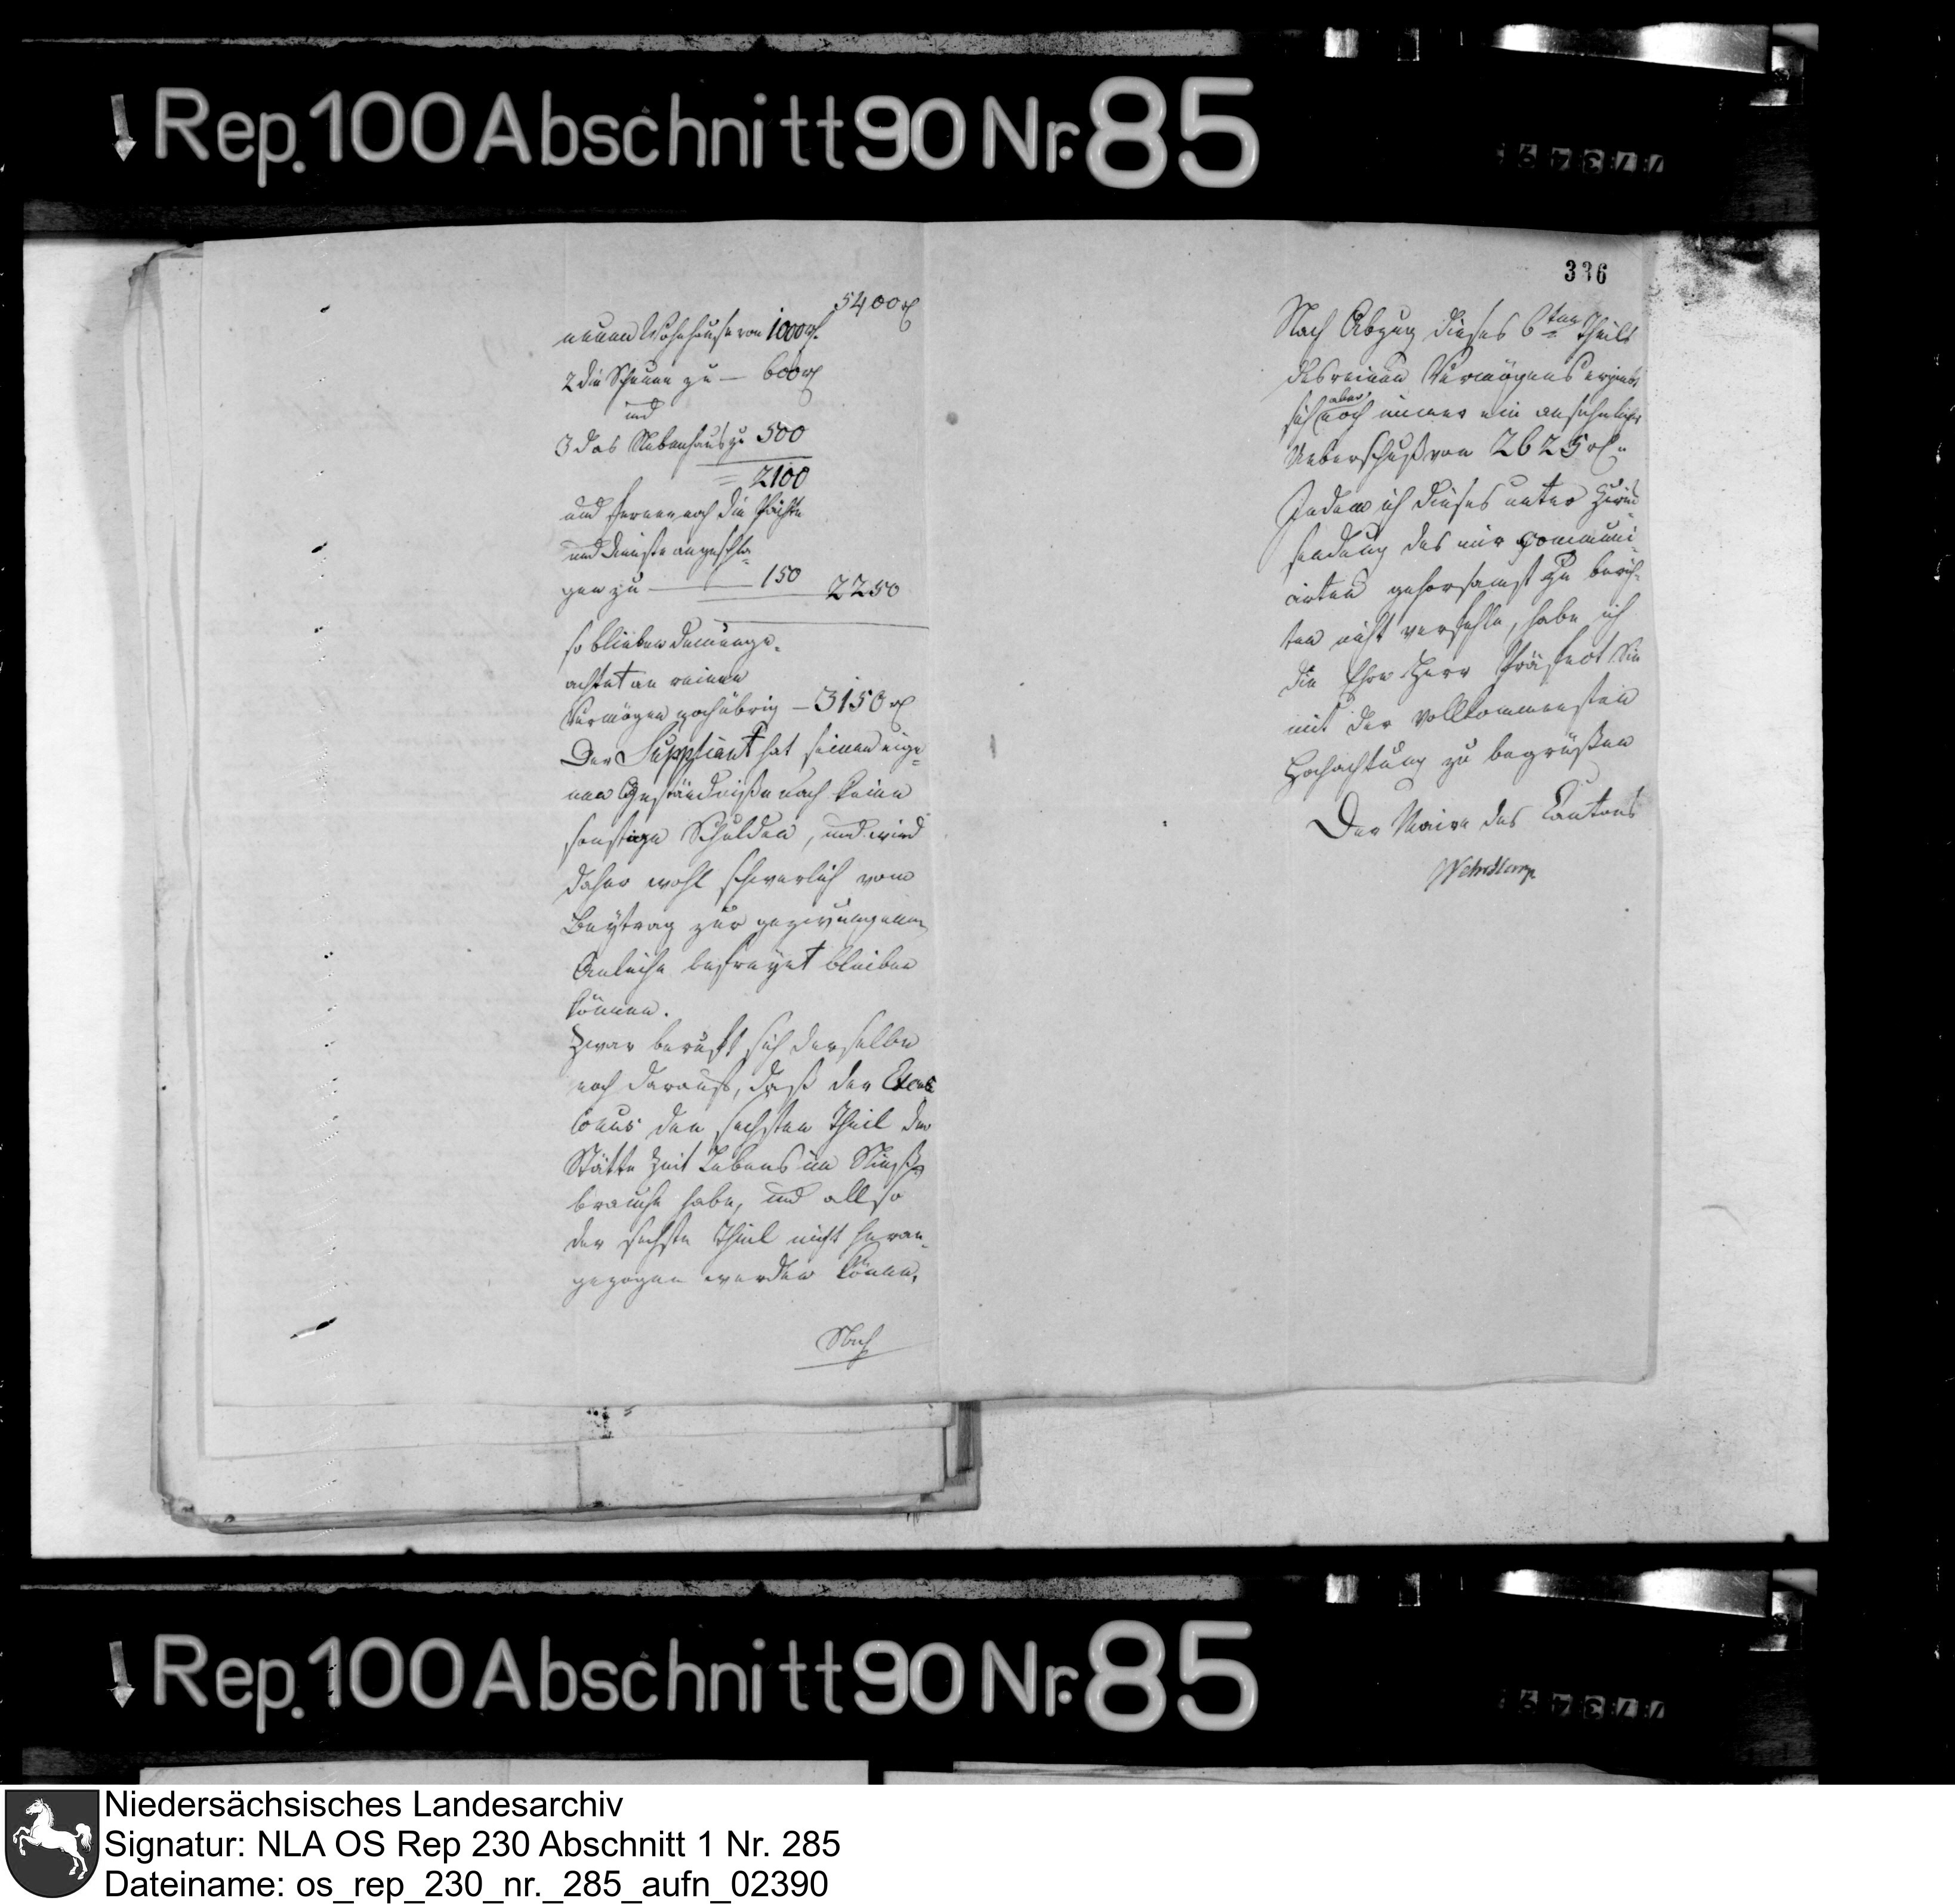 Rep. 100 Abschnitt 90 Nr. 85
5400 rℓ
neuen Wohnhause von 1000 rℓ.
2 die Scheune zu — 600 rℓ
und
3 das Nebenhaus zu 500
= 2100
und ferner noch die Pächte
und Dienste angeschla¬
gen zu — 150 2250
so blieben demunge¬
achtet an reinem
Vermögen noch übrig — 3150 rℓ
Der Supplicant hat seinem eige¬
nen Geständnisse nach keine
sonstige Schulden, und wird
daher wohl schwerlich vom
Beytrag zur gezwungenen
Anleihe befreyet bleiben
können.
Zwar beruft sich derselbe
noch darauf, daß der
den sechsten Theil der
Stätte Zeit Lebens im Niess¬
brauche habe, und allso
der sechste Theil nicht heran¬
gezogen werden könne.
Nach
336
Nach Abzug dieses 6ten Theils
des reinen Vermögens ergiebt
sich aber noch immer ein ansehnlicher
Ueberschuß von 2625 rℓ.
Indem ich dieses unter Zurück¬
sendung des mir communi¬
cirten gehorsamst zu berich¬
ten nicht verfehle, habe ich
die Ehre Herr Präfect Sie
mit der vollkommensten
Hochachtung zu begrüßen
Der Maire des Cantons
Rep. 100 Abschnitt 90 Nr. 85
Niedersächsisches Landesarchiv
Signatur: NLA OS Rep 230 Abschnitt 1 Nr. 285
Dateiname: os_rep_230_nr._285_aufn_02390